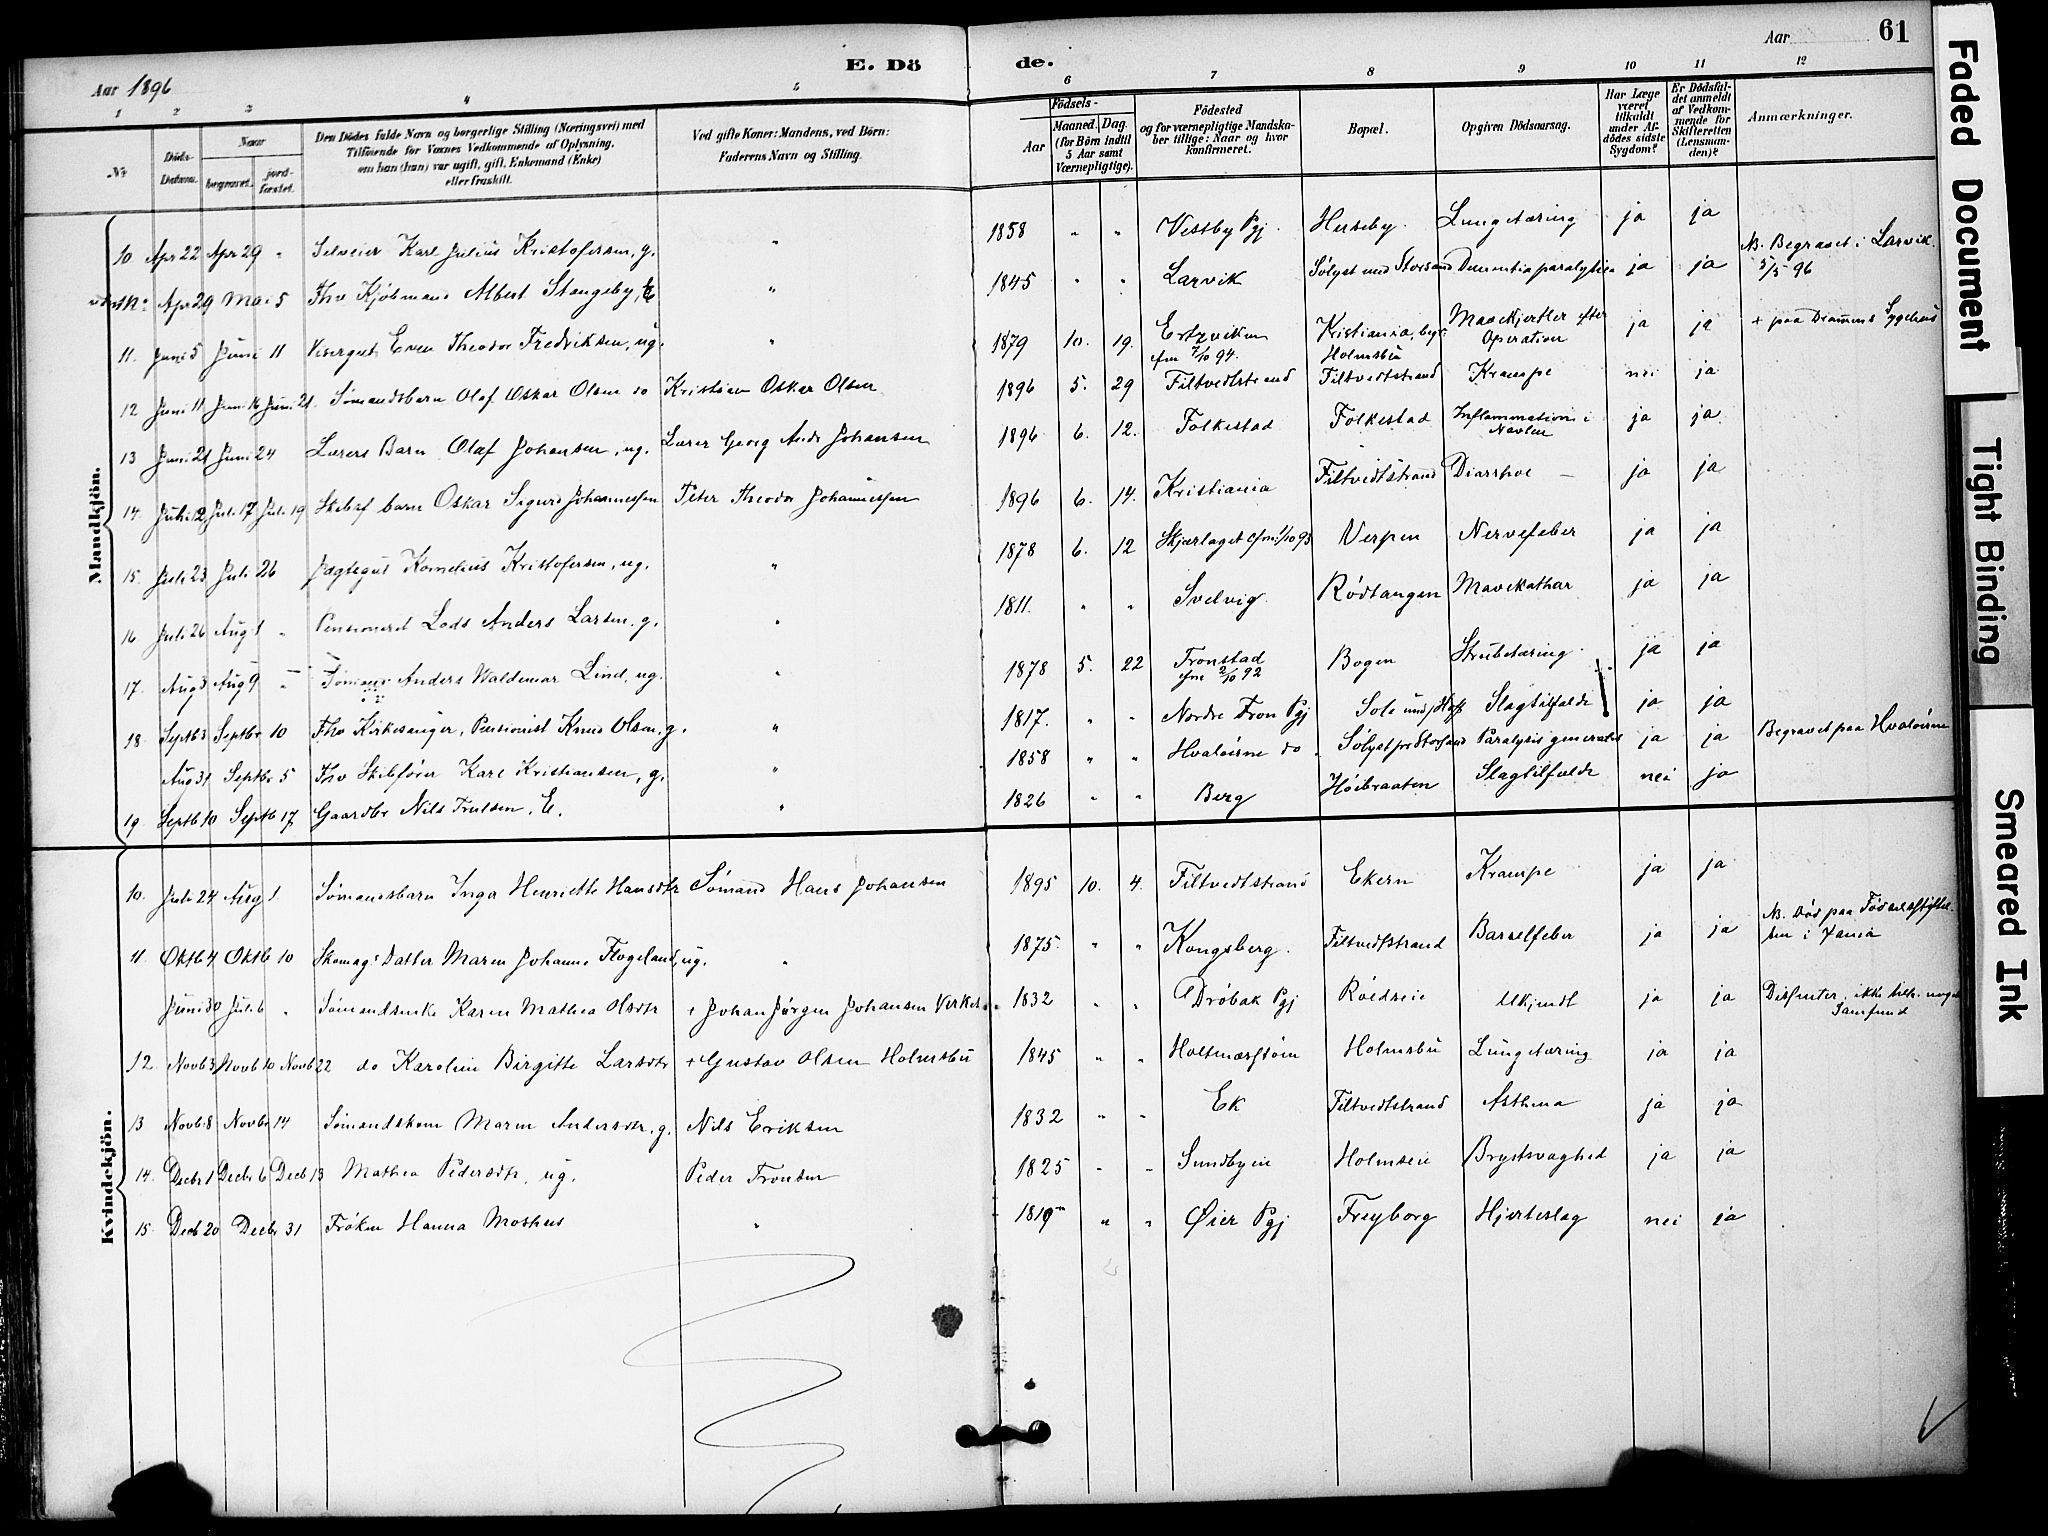 E. Döde.
Aar 1896
Aar
61
1 2 3 4 5 6 7 8 9 10 11 12
Nr
Döds-Datum.
Naar begravet. jordfæstet.
Den Dödes fulde Navn og borgerlige Stilling (Næringsvei) med Tilföiende for Voxnes Vedkommende af Oplysning, om han (hun) var ugift, gift, Enkemand (Enke) eller fraskilt.
Ved gifte Koner: Mandens, ved Börn: Faderens Navn og Stilling.
Födsels-
Aar
Maaned. Dag. (for Börn indtil 5 Aar samt Værnepligtige).
Födested og for værnepligtige Mandskaber tillige: Naar og hvor konfirmeret.
Bopæl.
Opgiven Dödsaarsag.
Har Læge været tilkaldt under Afdödes sidste Sygdom?
Er Dödsfaldet anmeldt af Vedkommende for Skifteretten (Lensmanden)?
Anmærkninger.
Mandkjön.
10 Apr 22 Apr 29 " Selveier Karl Julius Kristofersen, g. " 1858 " " Vestby Pgj. Herseby. Lungetæring ja ja
Apr 29 Mai 5 Fhv Kjøbmand Albert Stangeby, E " 1845 " " Larvik Sølyst ved Storsand Dementia paralytica ja ja NB. Begravet i Larvik 5/5 96
11. Juni 5 Juni 11 Visergut Even Theodor Fredriksen, ug. " 1879 10. 19. Ertzviken cfm 7/10 94. Kristiania, Holmsbu Mavekjertler efter Operation ja ja + paa Drammens Sygehus
12 Juni 11 Juni 16 Juni 21. Sømandsbarn Olaf Oskar Olsen do Kristian Oskar Olsen 1896 5. 29 Filtvedtstrand Filtvedtstrand Krampe nei ja
13 Juni 21 Juni 24 Lærers Barn Olaf Johansen, ug. Lærer Georg Andr Johansen 1896 6. 12. Folkestad Folkestad Inflammation i Navlen ja ja
14. Juli 12 Juli 17 Juli 19 Skibsf barn Oskar Sigurd Johannessen Peter Theodor Johannessen 1896 6. 14. Kristiania Filtvedtstrand Diarrhoe — ja ja
15. Juli 23 Juli 26 Jagtegut Kornelius Kristofersen, ug. " 1878 6. 12 Skjærlaget cfm 1/10 93 Verpen Nervefeber ja ja
16 Juli 26 Aug 1 " Pensioneret Lods Anders Larsen. g. " 1811. " " Svelvig Rödtangen Mavekathar ja ja
17. Aug 3 Aug 9 " Sømand Anders Valdemar Lind, ug. " 1878 5. 22 Tronstad cfm 2/10 92 Bogen Strubetæring ja ja
18. Septb 3 Septbr 10 Fhv Kirkesanger, Pensionist Knud Olsen, g. " 1817. " " Nordre Fron Pgj Sole Slagtilfælde ja ja
Aug 31 Septbr 5 Fhv Skibfører Karl Kristiansen, g. " 1858 " " Hvaløerne do Sølyst pr Storsand Paralysis generalis ja ja Begravet paa Hvaløerne
19 Septb 10 Septb 17 Gaardbr Nils Trulsen, E. " 1826 " " Berg Høibraaten Slagtilfælde nei ja
Kvindekjön.
10. Juli 24 Aug 1. Sømandsbarn Inga Henriette Hansdtr Sømand Hans Johansen 1895 10. 4. Filtvedtstrand Ekern Krampe ja ja
11. Oktb 4 Oktb 10 Skomag: Datter Maren Johanne Flogeland, ug. " 1875. " " Kongsberg. Filtvedtstrand Barselfeber ja ja NB. Død paa Fødselsstiftelsen i
Juni 30 Juli 6 " Sømandsenke Karen Mathea Olsdtr + Johan Jørgen Johansen 1832 " " Drøbak Pgj Røedseie Ukjendt ja ja Disfenter, ikke tilh. noget Samfund
12. Novb 3 Novb 10 Novb 22 do Karoline Birgitte Larsdtr + Gustav Olsen Holmsbu 1845 " " Holtnæsstøen Holmsbu Lungetæring ja ja
13 Novb 8 Novbr 14 Sømandskone Maren Andersdtr. g. Nils Eriksen 1832 " " Ek Filtvedtstrand Asthma ja ja
14. Decbr 1 Decbr 6 Decb 13 Mathea Pedersdtr, ug. Peder Tronsen 1825 " " Sundbyeie Holmseie Brystsvaghed ja ja
15. Decb 20 Decbr 31 Frøken Hanna Moshus " 1819 " " Øier Pgj Freyborg Hjerteslag nei ja
Faded Document
Tight Binding
Smeared Ink